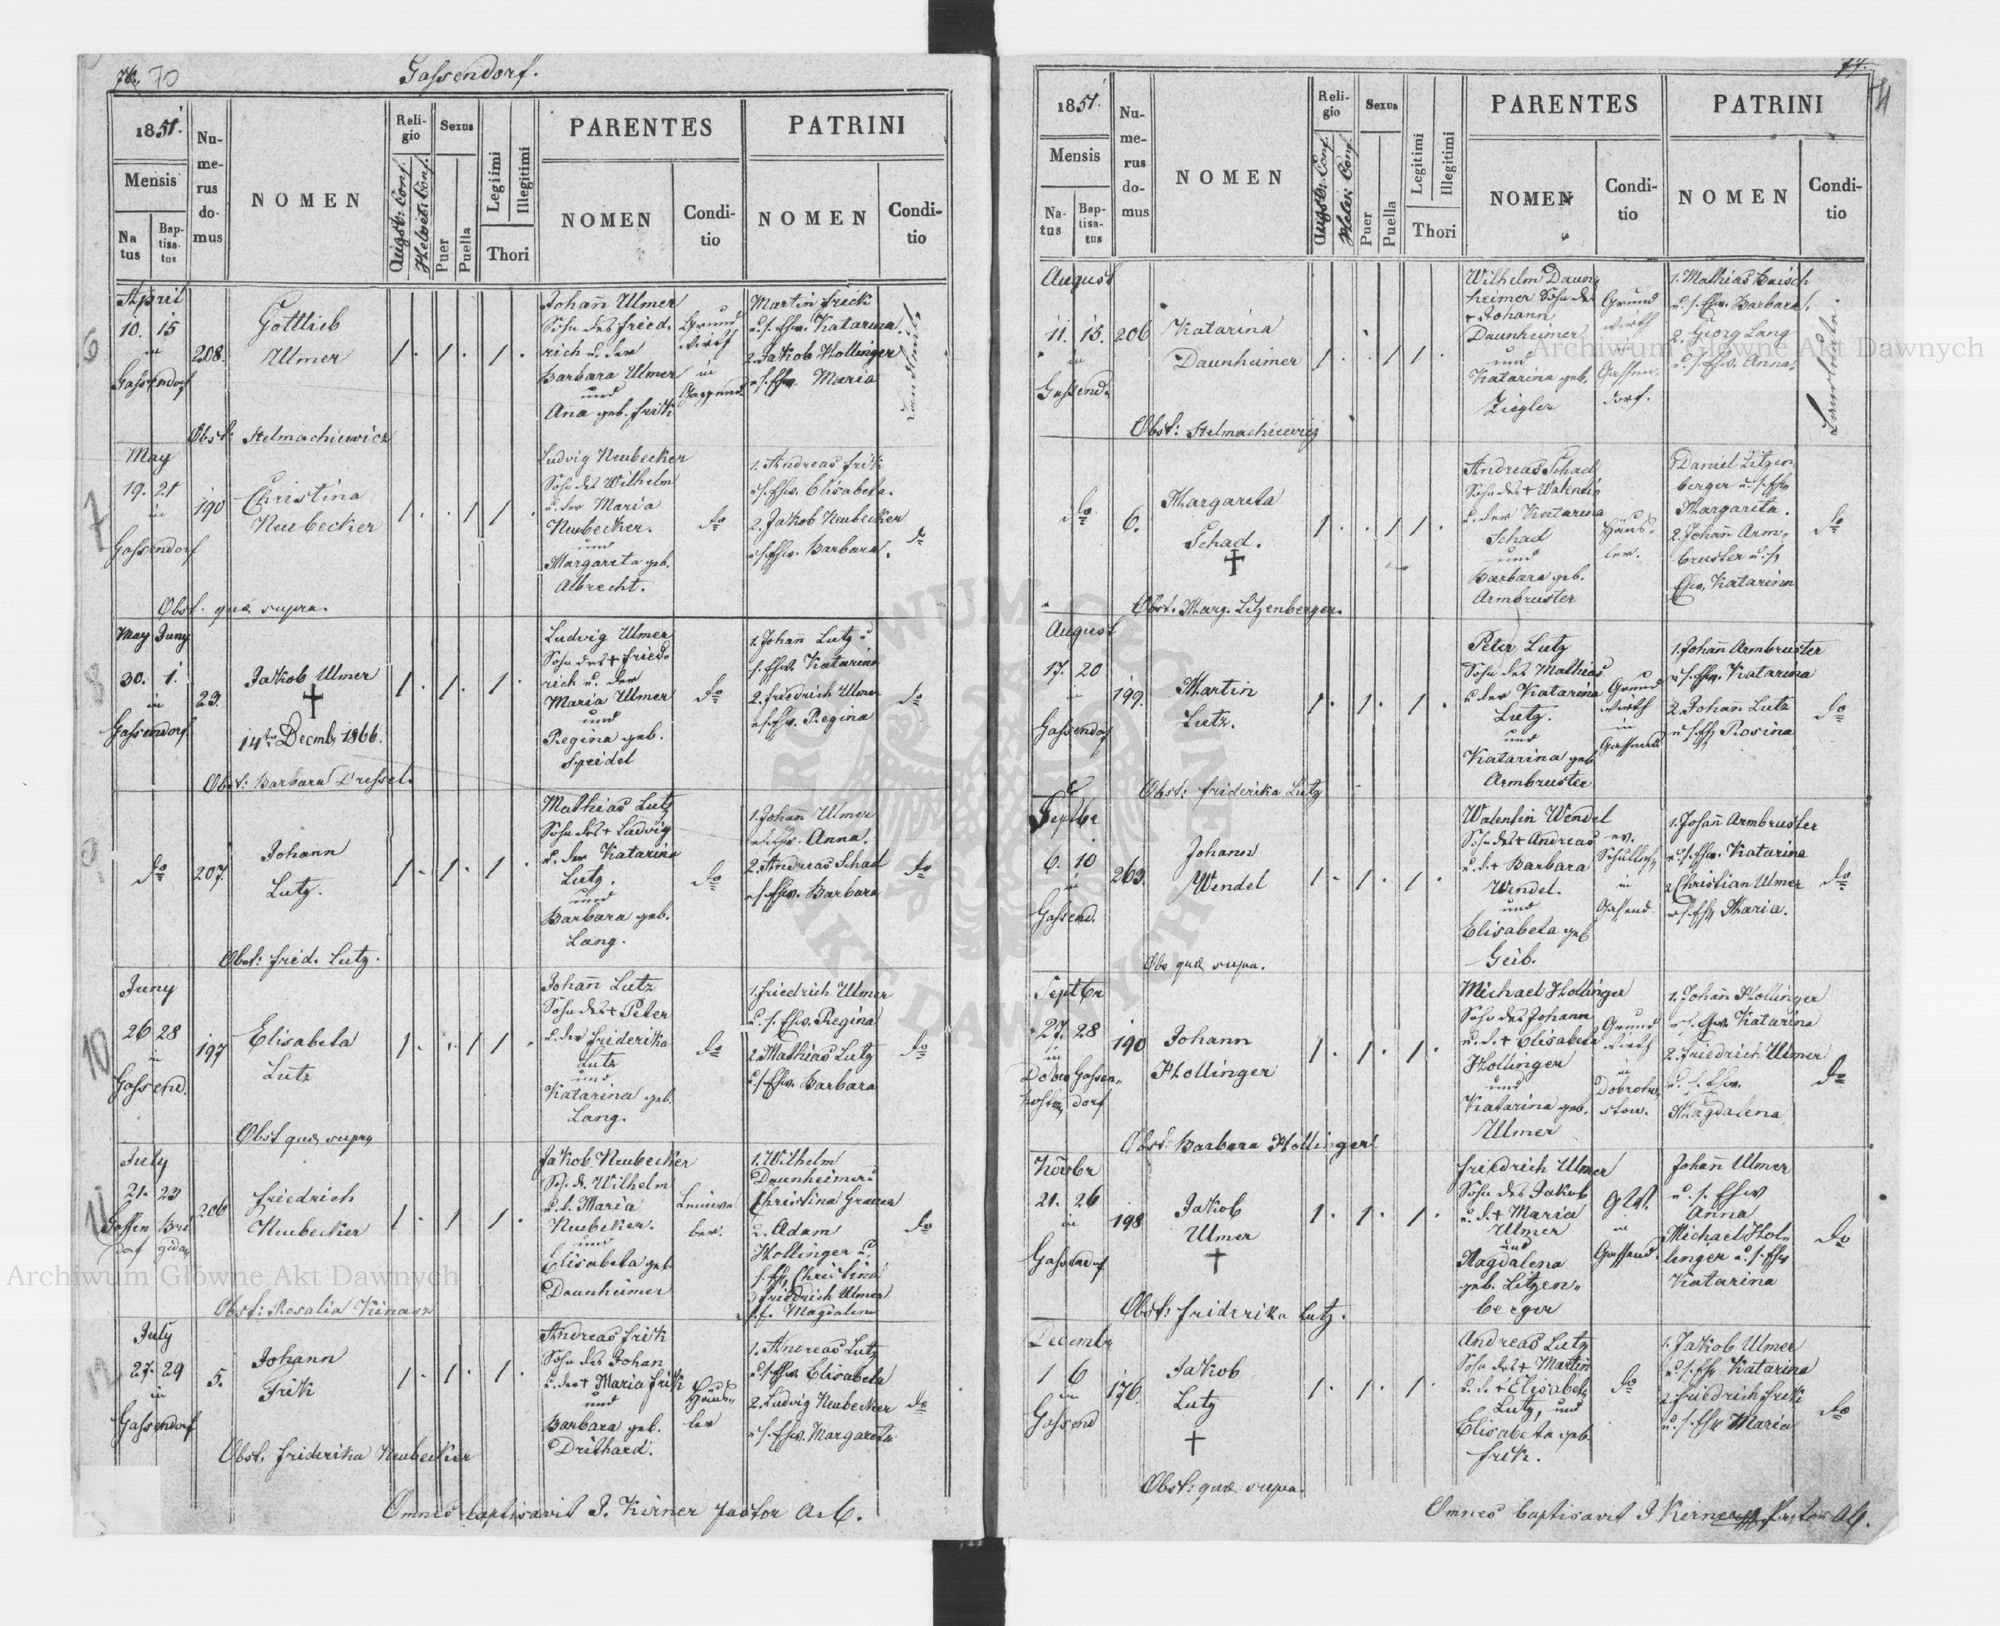 70
Gassendorf.
1851.
Mensis
Natus
Baptisatus
Numerus domus
NOMEN
Religio
Augsb: Conf.
Helvet: Conf.
Sexus
Puer
Puella
Legiimi
Illegitimi
Thori
PARENTES
NOMEN
Conditio
PATRINI
NOMEN
Conditio
April
10. 15
in
Gassendorf
208.
Gottlieb
Ulmer
Johañ Ulmer
Sohn des Fried.
rich u. der
Barbara Ulmer
und
Aña geb. Frick
Grund
wirth
in
Martin Frick
u. s. Ehw. Katarina
2. Jakob Hollinger
u. s. Ehw. Maria
Landwirth
Obst: Stelmachiewicz
May
19. 21
in
Gassendorf
190
Christina
Neubecker
Ludvig Neubecker
Sohn des Wilhelm
u. der Maria
Neubecker.
und
Margareta geb.
Albrecht.
do
1. Andreas Frik
u. s. Ehw. Elisabeta.
2. Jakob Neubecker
u. s. Ehw. Barbara.
do
Obst. quæ supra.
May Juny
30. 1.
in
Gassendorf
23.
Jakob Ulmer
14ten Decmbr 1866.
Ludvig Ulmer
Sohn des + Fried=
rich u. der
Maria Ulmer
und
Regina geb.
Speidel
do
1. Johañ Lutz u
s. Ehw. Katarina
2. Friedrich Ulmer
u. s. Ehw. Regina
do
Obst: Barbara Dressel.
do
207.
Johann
Lutz.
Mathias Lutz
Sohn des + Ludvig
u. der Katarina
Lutz.
und
Barbara geb.
Lang.
do
1. Johañ Ulmer
u. s. Ehw. Anna.
2. Andreas Schad
u. s. Ehw. Barbara
do
Obst: Fried. Lutz.
Juny
26 28
in
Gassend.
197
Elisabeta
Lutz
Johañ Lutz
Sohn des + Peter
u. der Friderika
Lutz
und
Katarina geb.
Lang.
do
1. Friedrich Ulmer
u. s. Ehw. Regina
2. Mathias Lutz
u. s. Ehw. Barbara
do
Obst quæ supra
July
21. 23
206
Friedrich
Neubecker
Jakob Neubecker
So. d. Wilhelm
u. d. Maria
Neubeker.
und
Elisabeta geb
Daunheimer
1. Wilhelm
Daunheimer u
Christina
2. Adam
Hollinger u.
s. Eh. Christina
3 Friedrich Ulmer
s. f. Magdalena
do
Obst: Rosalia Kinasz
July
27. 29
in
Gassendorf
5.
Johann
Frik
Andreas Frik
Sohn des Johan
u. der + Maria Frik
und
Barbara geb.
Drithard.
Häus=
ler
1. Andreas Lutz
u. s. Ehw. Elisabeta
2. Ludvig Neubecker
u. s. Ehw. Margareta
do
Obst. Friderika Neubecker
Omnes baptisavit J. Kirner pastor A. C.
6
7
8
9
10
11
12
71.
71
1851.
Mensis
Natus
Baptisatus
Numerus domus
NOMEN
Religio
Augsb: Conf.
Helv: Conf.
Sexus
Puer
Puella
Legitimi
Illegitimi
Thori
PARENTES
NOMEN
Conditio
PATRINI
NOMEN
Conditio
August
11. 15.
in
Gassend.
206
Katarina
Daunheimer
Wilhelm Daun
heimer Sohn des
+ Johann
Daunheimer
und
Katarina geb.
Ziegler
Grund
wirth
in
Gassen.
dorf.
1. Mathias Baisch
u. s. Ehw. Barbara.
2. Georg Lang
u. s. Ehw. Anna.
Landwirth
Obst: Stelmachiewicz
do
6.
Margareta
Schad.
Andreas Schad
Sohn des + Walentin
u. der Katarina
Schad
und
Barbara geb.
Armbruster
Häus=
ler.
Daniel Litzen
berger u. s. Ehw
Margareta.
2. Johañ Arm=
bruster u. s.
Ehw. Katarina
do
Obst. Marg. Litzenberger.
August
17. 20
in
Gassendorf
199.
Martin
Lutz.
Peter Lutz
Sohn des Mathias
u. der Katarina
Lutz.
und
Katarina geb
Armbruster
Grund
wirth
in
Gassend.
1. Johañ Armbruster
u. s. Ehw. Katarina
2. Johañ Lutz
u. s. Eh Rosina
do
Obst: Friderika Lutz
Septbr
6. 10
in
Gassend.
263.
Johann
Wendel
Walentin Wendel
Sohn des + Andreas
u. d. + Barbara
Wendel.
und
Elisabeta geb
Geib.
ev.
in
Gassend
1. Johañ Armbruster
u. s. Ehw. Katarina
2 Christian Ulmer
u. s. Eh Maria.
do
Obs quæ supra.
Septbr
27. 28
in
Gassen=
dorf
190
Johann
Hollinger
Michael Hollinger
Sohn des Johann
u. d. + Elisabeta
Hollinger
und
Katarina geb.
Ulmer
Grund
wirth
in
Dobrohos=
tow.
1. Johañ Hollinger
u. s. Ehw. Katarina
2. Friedrich Ulmer
u. s. Ehw.
Magdalena
do
Obst: Barbara Hollinger
Novbr
21. 26
in
Gassendorf
198
Jakob
Ulmer
Friedrich Ulmer
Sohn des Jakob
u. d. + Maria
Ulmer
und
Magdalena
geb. Litzen=
berger
in
Gassend.
Johañ Ulmer
u. s. Ehw
Anna
Michael Hol=
linger u. s. Ehw
Katarina
do
Obst: Friderika Lutz.
Decembr
1 6
in
Gassend
176.
Jakob
Lutz
Andreas Lutz
Sohn des + Martin
u. d. + Elisabet
Lutz, und
Elisabeta geb.
Frik.
do
1. Jakob Ulmer
u. s. Eh Katarina
2. Friedrich Frik
u. s. Ehw Maria
do
Obst: quæ supra.
Omnes baptisavit J Kirner Pastor AC.
Archiwum Główne Akt Dawnych
Archiwum Główne Akt Dawnych
ARCHIWUM GŁÓWNE AKT DAWNYCH